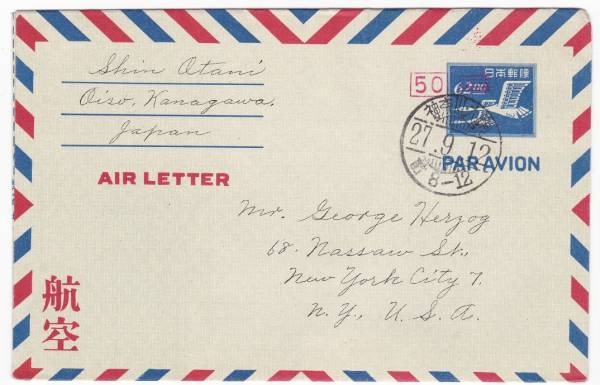 Shin Otani
Oiso, Kanagawa,
Japan
AIR LETTER
50
日本郵便
62.00
神奈川
27.9.12
8-12
PAR AVION
Mr. George Herzog
68. Nassaw St.,
New York City 7.
N.Y., U.S.A.
航空